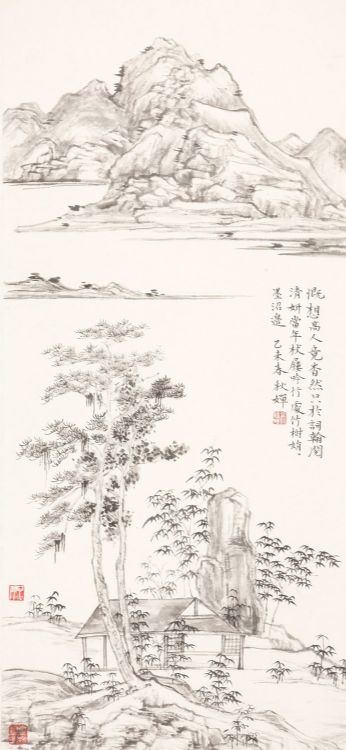 慨想高人竟杳然只於詞翰閱
清妍當年杖屨吟行處竹樹娟、
墨沼邊 乙未春 秋嬋